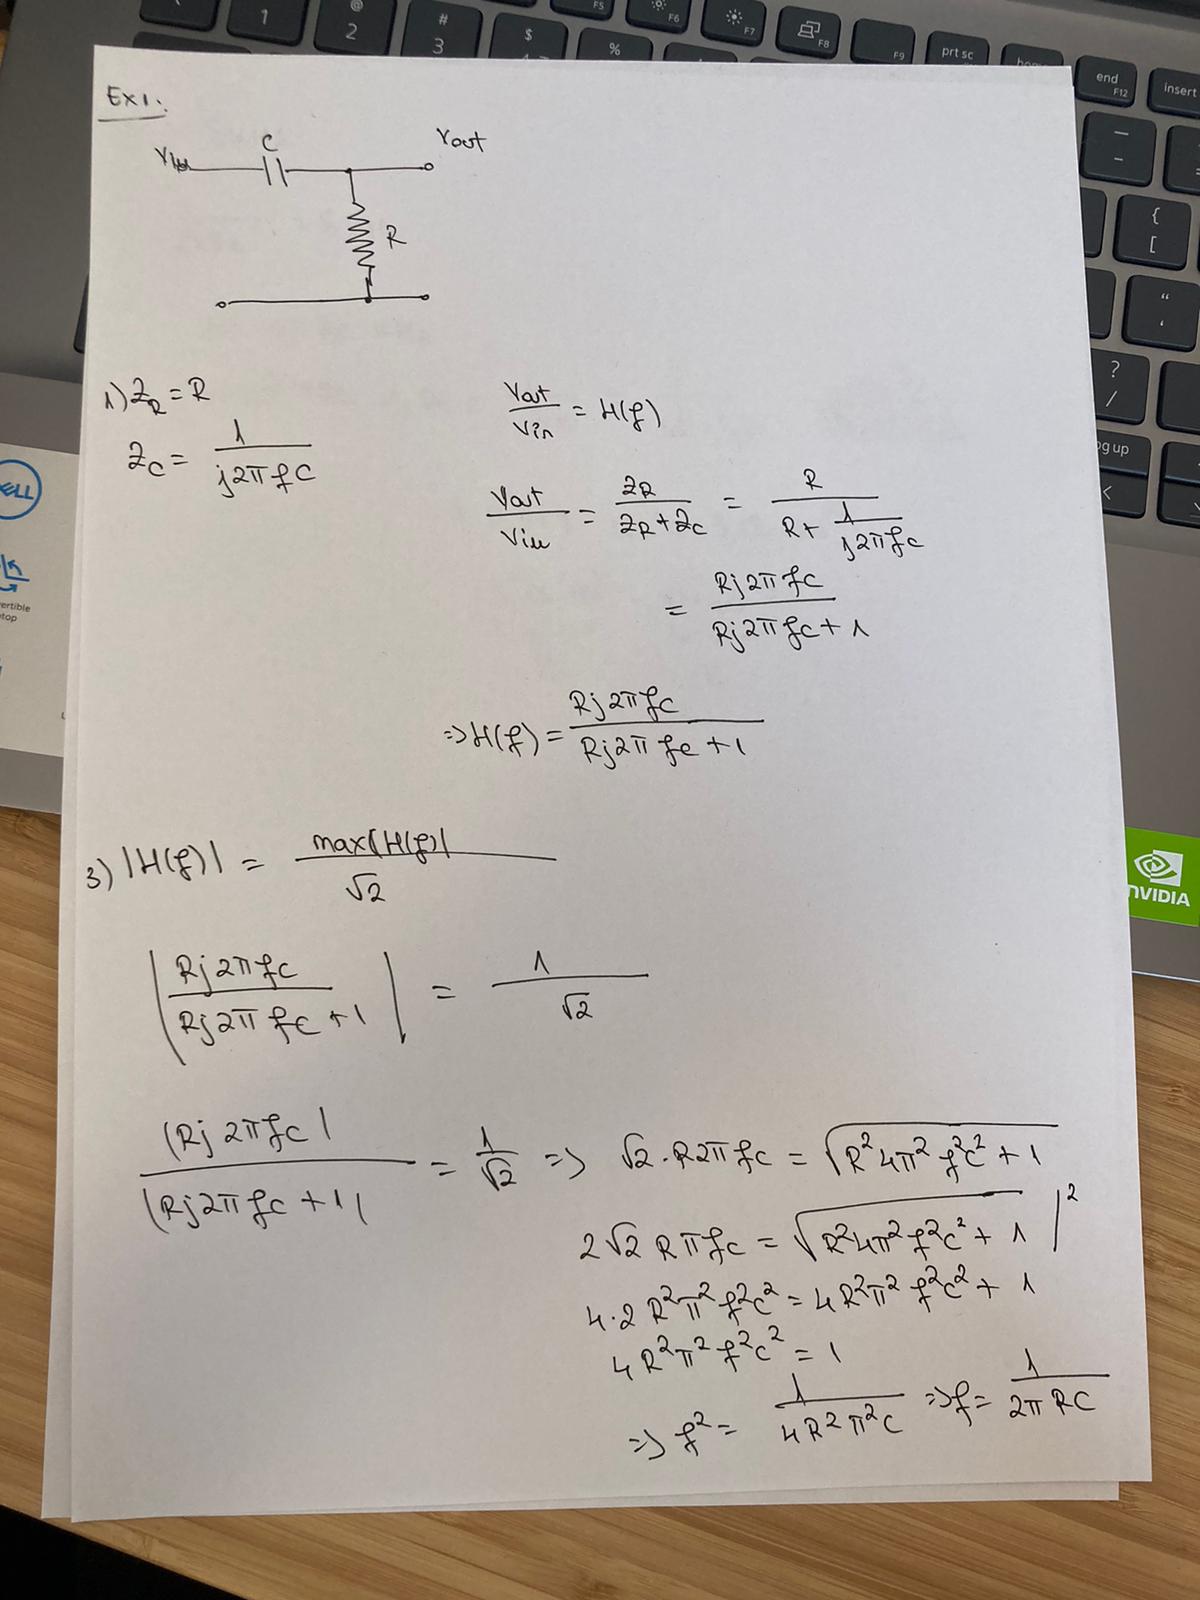 1
@
2
#
3
$
%
F5
F6
F7
F8
F9
prt sc
end
F12
insert
Ex1:
Vin
C
Vout
R
{
[
“
‘
?
/
pg up
<
DELL
1) Z_R = R
Z_C = 1/(j2πfC)
Vout/Vin = H(f)
Vout/Vin = Z_R/(Z_R+Z_C) = R/(R+1/(j2πfC))
= Rj2πfC/(Rj2πfC+1)
=> H(f) = Rj2πfC/(Rj2πfC+1)
3) |H(f)| = max|H(f)|/√2
|Rj2πfC/(Rj2πfC+1)| = 1/√2
|Rj2πfC|/|Rj2πfC+1| = 1/√2 => √2·R2πfC = √(R²4π²f²C²+1)
2√2RπfC = √(R²4π²f²C²+1) |²
4·2R²π²f²C² = 4R²π²f²C²+1
4R²π²f²C² = 1
=> f² = 1/(4R²π²C) => f = 1/(2πRC)
NVIDIA